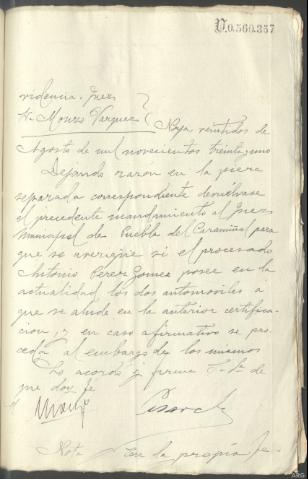 V.0.560.357
videncia. Juez
Sr. Mouzo Vazquez } Noya veintidos de
Agosto de mil novecientos treintayuno
Dejando razon en la pieza
separada correspondiente devuélvase
el precedente mandamiento al Juez
Municipal de Puebla del Caramiñal para
que se averigüe si el procesado
Antonio Perez Gomez posee en la
actualidad los dos automoviles a
que se alude en la anterior certifica-
cion, y en caso afirmativo se pro-
ceda al embargo de los mismos
Lo acordó y firma S. Sª de
que doy fe
Nota En la propia fe-